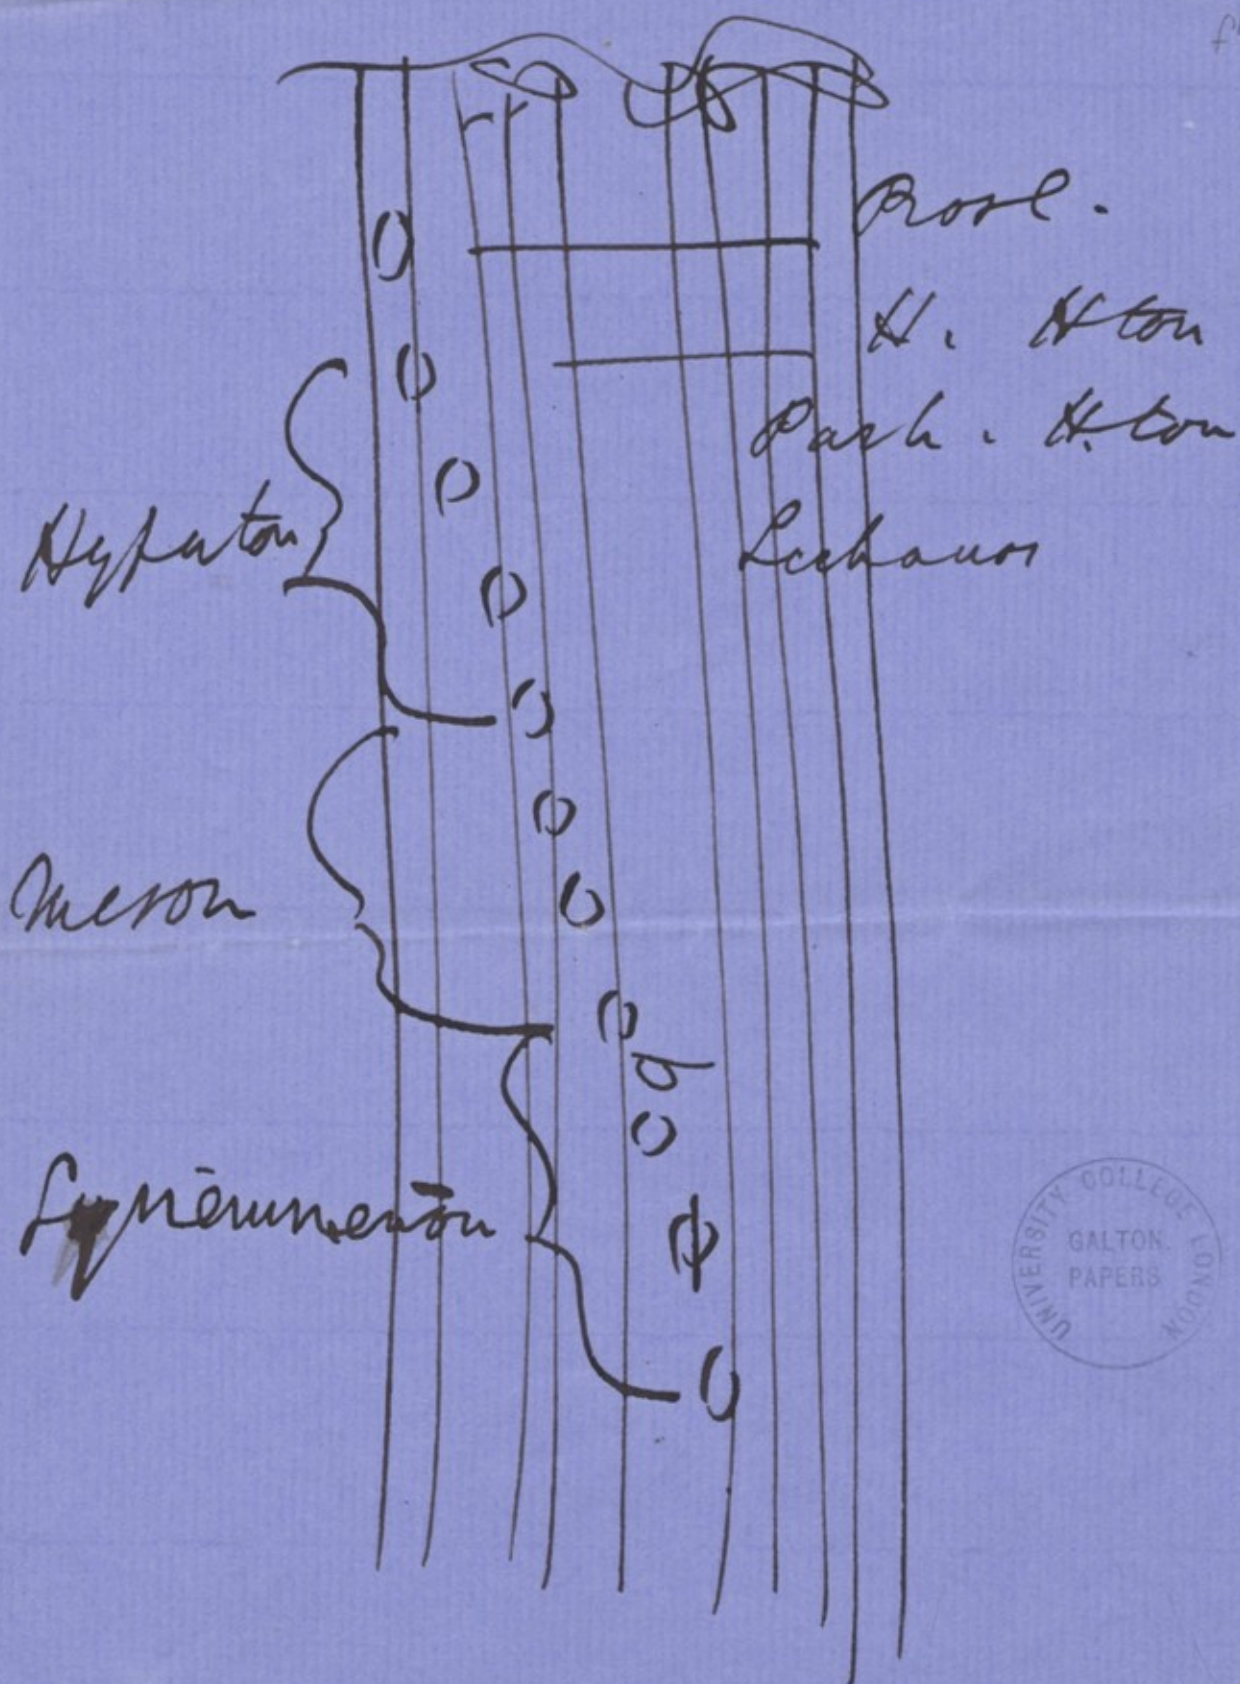 Prosl.
H. Hton
Parh. H.ton
Lichanos
Hypaton
Meson
Synēmmenōn
UNIVERSITY COLLEGE LONDON
GALTON
PAPERS